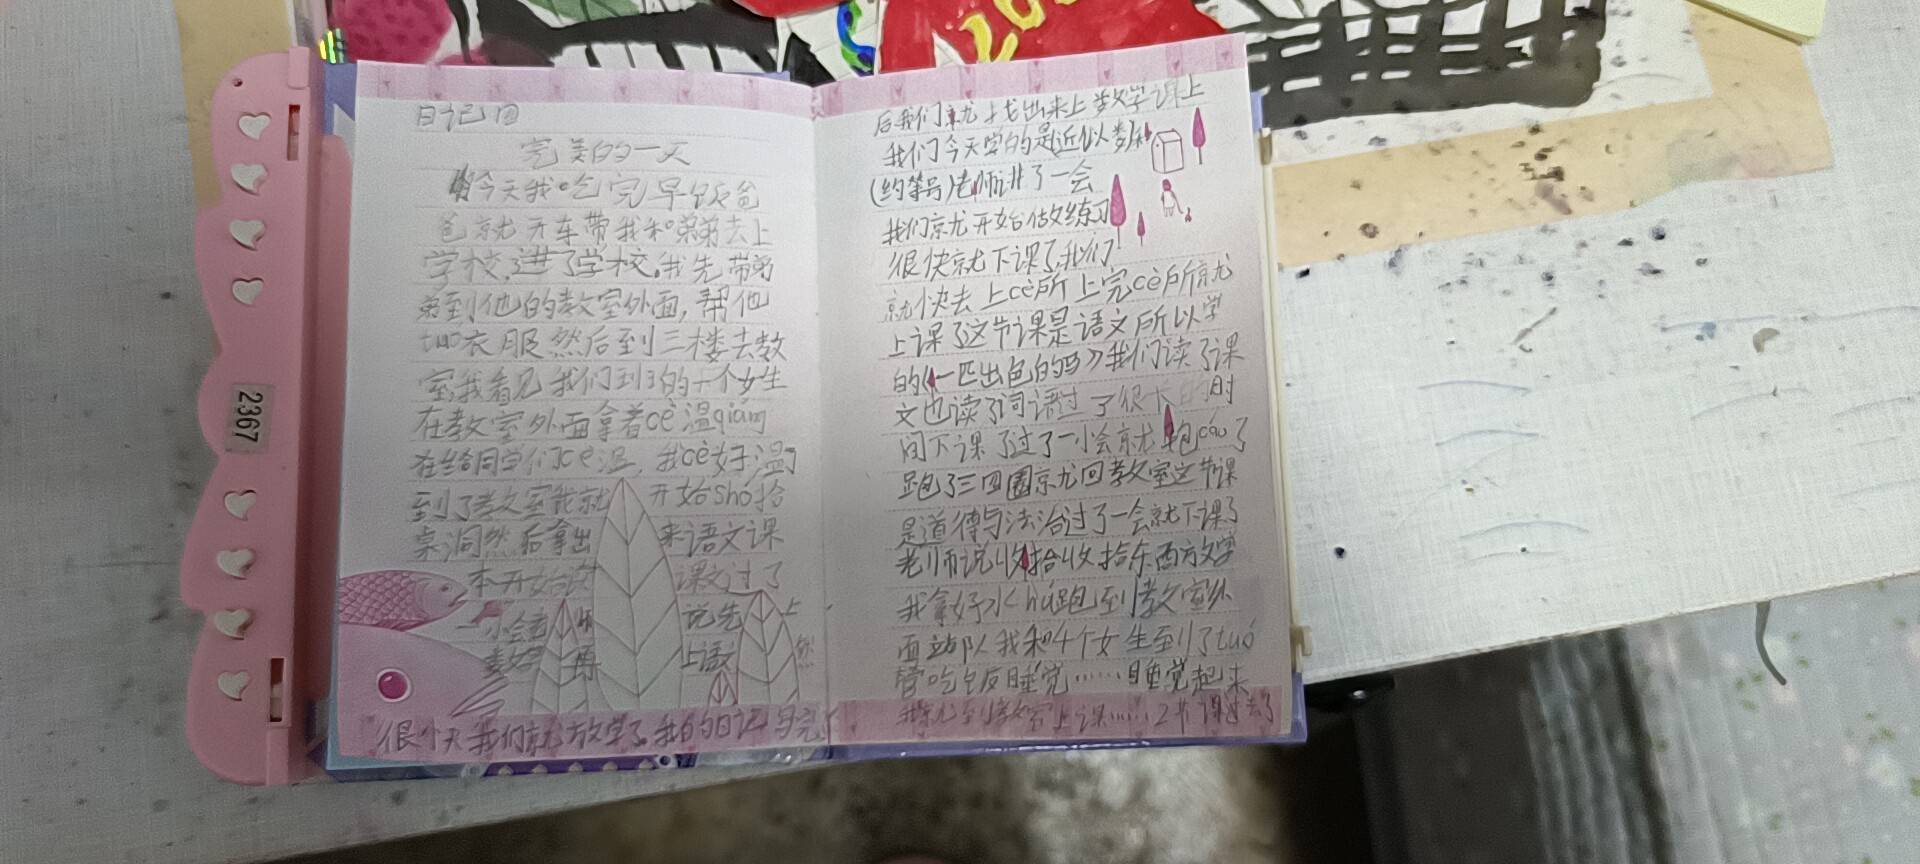 2367
日记四
完美的一天
今天我吃完早饭爸
爸就开车带我和弟弟去上
学校,进了学校,我先带弟
弟到他的教室外面,帮他
tuō衣服然后到三楼去教
室,我看见我们到的一个女生
在教室外面拿着cè温qiāng
在给同学们cè温,我cè好温了
到了教室我就开始shō拾
桌洞然后拿出来语文课
本开始读课文过了
一小会老师说先上
数学再上语文
后我们就才找出来上数学课上
我们今天学的是近似数和
(约等号)老师讲了一会
我们就开始做练习
很快就下课了,我们
就快去上cè所上完cè所就
上课了这节课是语文所以学
的《一匹出色的马》我们读了课
文也读了词语过了很长的时
间下课了过了一小会就跑cáo了
跑了三四圈就回教室这节课
是道德与法治过了一会就下课了
老师说收拾收拾东西方文学
我拿好水hú跑到教室外
面站队我和4个女生到了tuō
管吃饭睡觉……睡觉起来
我就到教室上课……2节课过去了
很个天我们就放学了,我的日记写完了